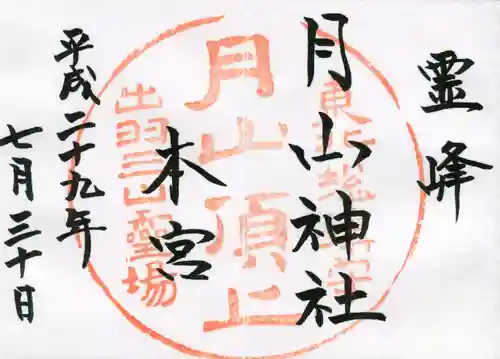 霊峰
月山神社
本宮
平成二十九年
七月三十日
月山頂上
出羽三山霊場